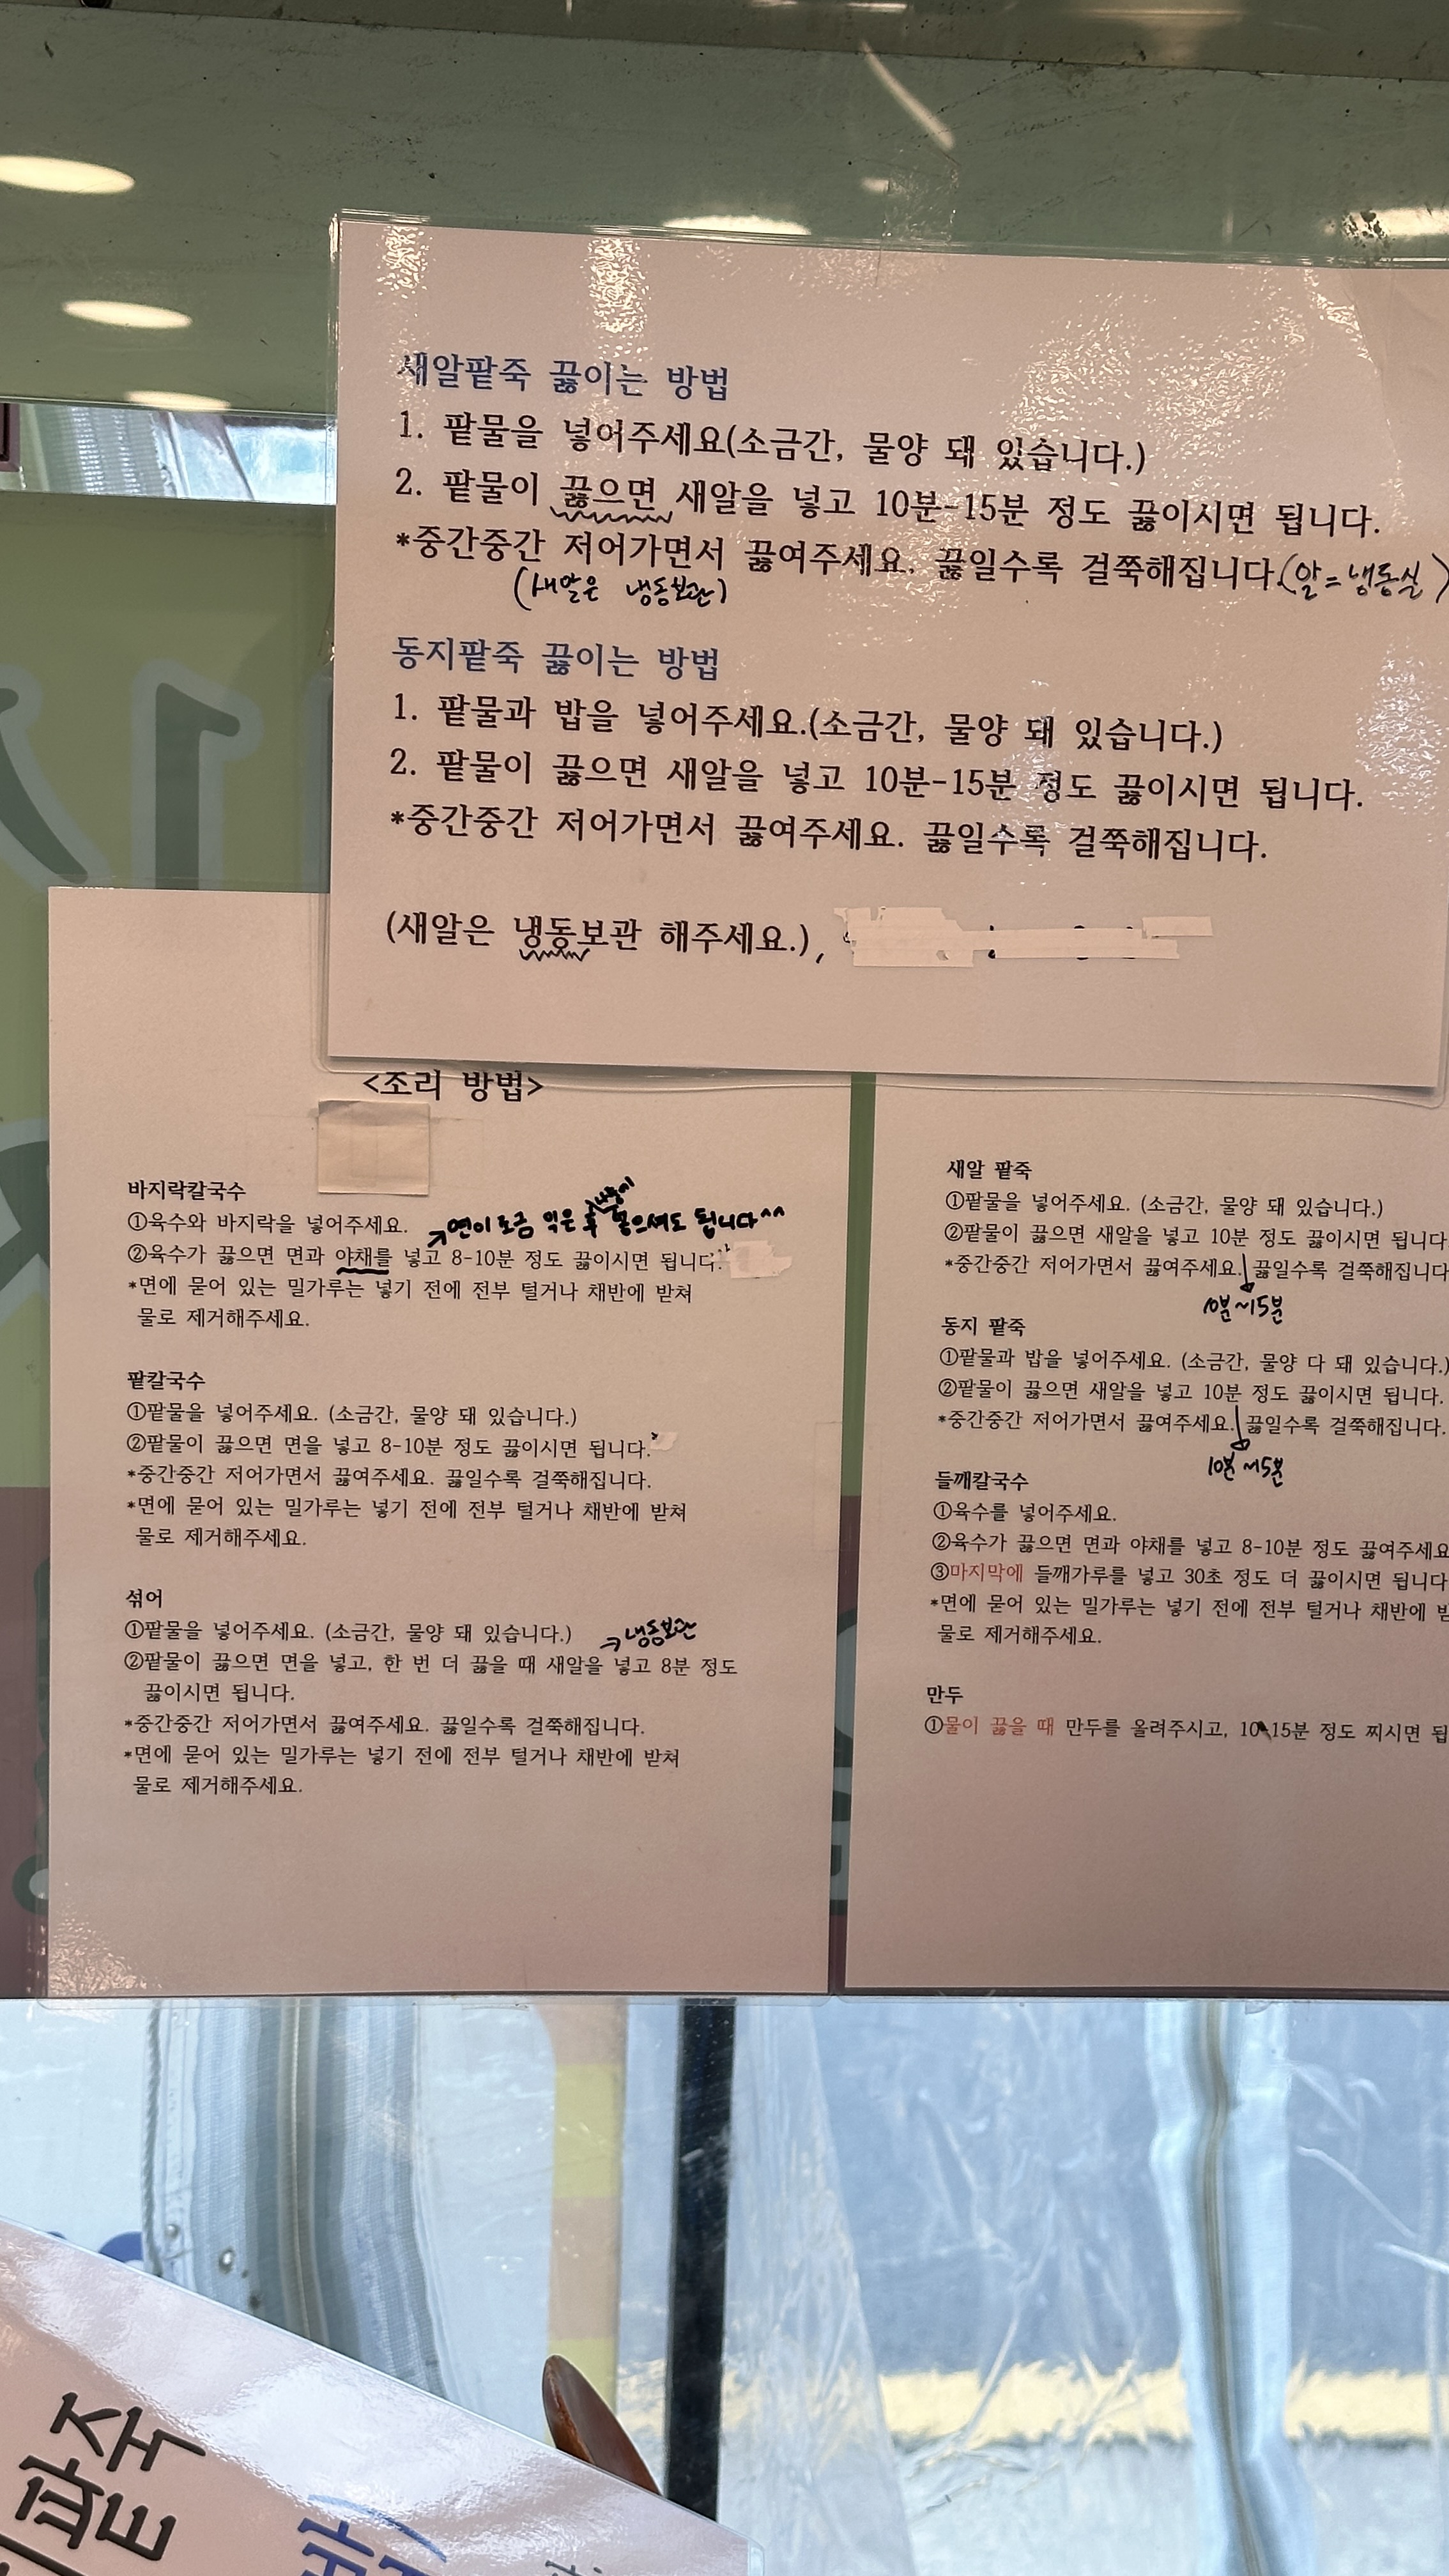 새알팥죽 끓이는 방법
1. 팥물을 넣어주세요(소금간, 물양 돼 있습니다.)
2. 팥물이 끓으면 새알을 넣고 10분-15분 정도 끓이시면 됩니다.
*중간중간 저어가면서 끓여주세요. 끓일수록 걸쭉해집니다.(알=냉동실)
(새알은 냉동보관)
동지팥죽 끓이는 방법
1. 팥물과 밥을 넣어주세요.(소금간, 물양 돼 있습니다.)
2. 팥물이 끓으면 새알을 넣고 10분-15분 정도 끓이시면 됩니다.
*중간중간 저어가면서 끓여주세요. 끓일수록 걸쭉해집니다.
(새알은 냉동보관 해주세요.),
<조리 방법>
바지락칼국수
①육수와 바지락을 넣어주세요.
→면이 조금 익은 후 넣으셔도 됩니다^^
②육수가 끓으면 면과 야채를 넣고 8-10분 정도 끓이시면 됩니다.
*면에 묻어 있는 밀가루는 넣기 전에 전부 털거나 채반에 받쳐
물로 제거해주세요.
팥칼국수
①팥물을 넣어주세요. (소금간, 물양 돼 있습니다.)
②팥물이 끓으면 면을 넣고 8-10분 정도 끓이시면 됩니다.
*중간중간 저어가면서 끓여주세요. 끓일수록 걸쭉해집니다.
*면에 묻어 있는 밀가루는 넣기 전에 전부 털거나 채반에 받쳐
물로 제거해주세요.
섞어
①팥물을 넣어주세요. (소금간, 물양 돼 있습니다.)
→냉동보관
②팥물이 끓으면 면을 넣고, 한 번 더 끓을 때 새알을 넣고 8분 정도
끓이시면 됩니다.
*중간중간 저어가면서 끓여주세요. 끓일수록 걸쭉해집니다.
*면에 묻어 있는 밀가루는 넣기 전에 전부 털거나 채반에 받쳐
물로 제거해주세요.
새알 팥죽
①팥물을 넣어주세요. (소금간, 물양 돼 있습니다.)
②팥물이 끓으면 새알을 넣고 10분 정도 끓이시면 됩니다
*중간중간 저어가면서 끓여주세요. 끓일수록 걸쭉해집니다
10분~15분
동지 팥죽
①팥물과 밥을 넣어주세요. (소금간, 물양 다 돼 있습니다.)
②팥물이 끓으면 새알을 넣고 10분 정도 끓이시면 됩니다.
*중간중간 저어가면서 끓여주세요. 끓일수록 걸쭉해집니다.
10분~15분
들깨칼국수
①육수를 넣어주세요.
②육수가 끓으면 면과 야채를 넣고 8-10분 정도 끓여주세요
③마지막에 들깨가루를 넣고 30초 정도 더 끓이시면 됩니다
*면에 묻어 있는 밀가루는 넣기 전에 전부 털거나 채반에 받
물로 제거해주세요.
만두
①물이 끓을 때 만두를 올려주시고, 10-15분 정도 찌시면 됩
팥죽